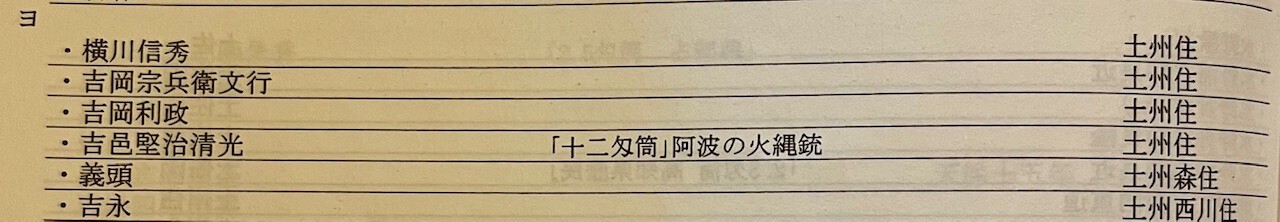 ヨ
・横川信秀 土州住
・吉岡宗兵衛文行 土州住
・吉岡利政 土州住
・吉邑堅治清光 「十二匁筒」阿波の火縄銃 土州住
・義頭 土州森住
・吉永 土州西川住